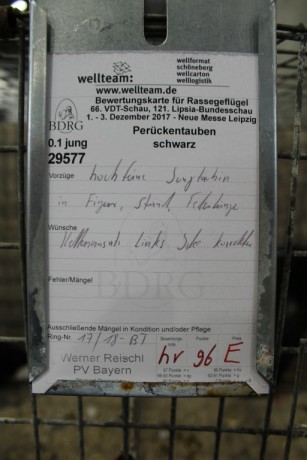 wellteam:
wellformat
schöneberg
wellcarton
welllogistik
www.wellteam.de
Bewertungskarte für Rassegeflügel
66. VDT-Schau, 121. Lipsia-Bundesschau
1. - 3. Dezember 2017 - Neue Messe Leipzig
BDRG
Perückentauben
schwarz
0.1 jung
29577
Vorzüge hochfeine Jungtäubin
in Figur, Stand, Federlänge
Wünsche
links
Fehler/Mängel
BDRG
Ausschließende Mängel in Kondition und/oder Pflege
Ring-Nr. 17/18-BT
Bewertungs-
note
Punkte
Preis
hv 96 E
Werner Reischl
PV Bayern
97 Punkte = v